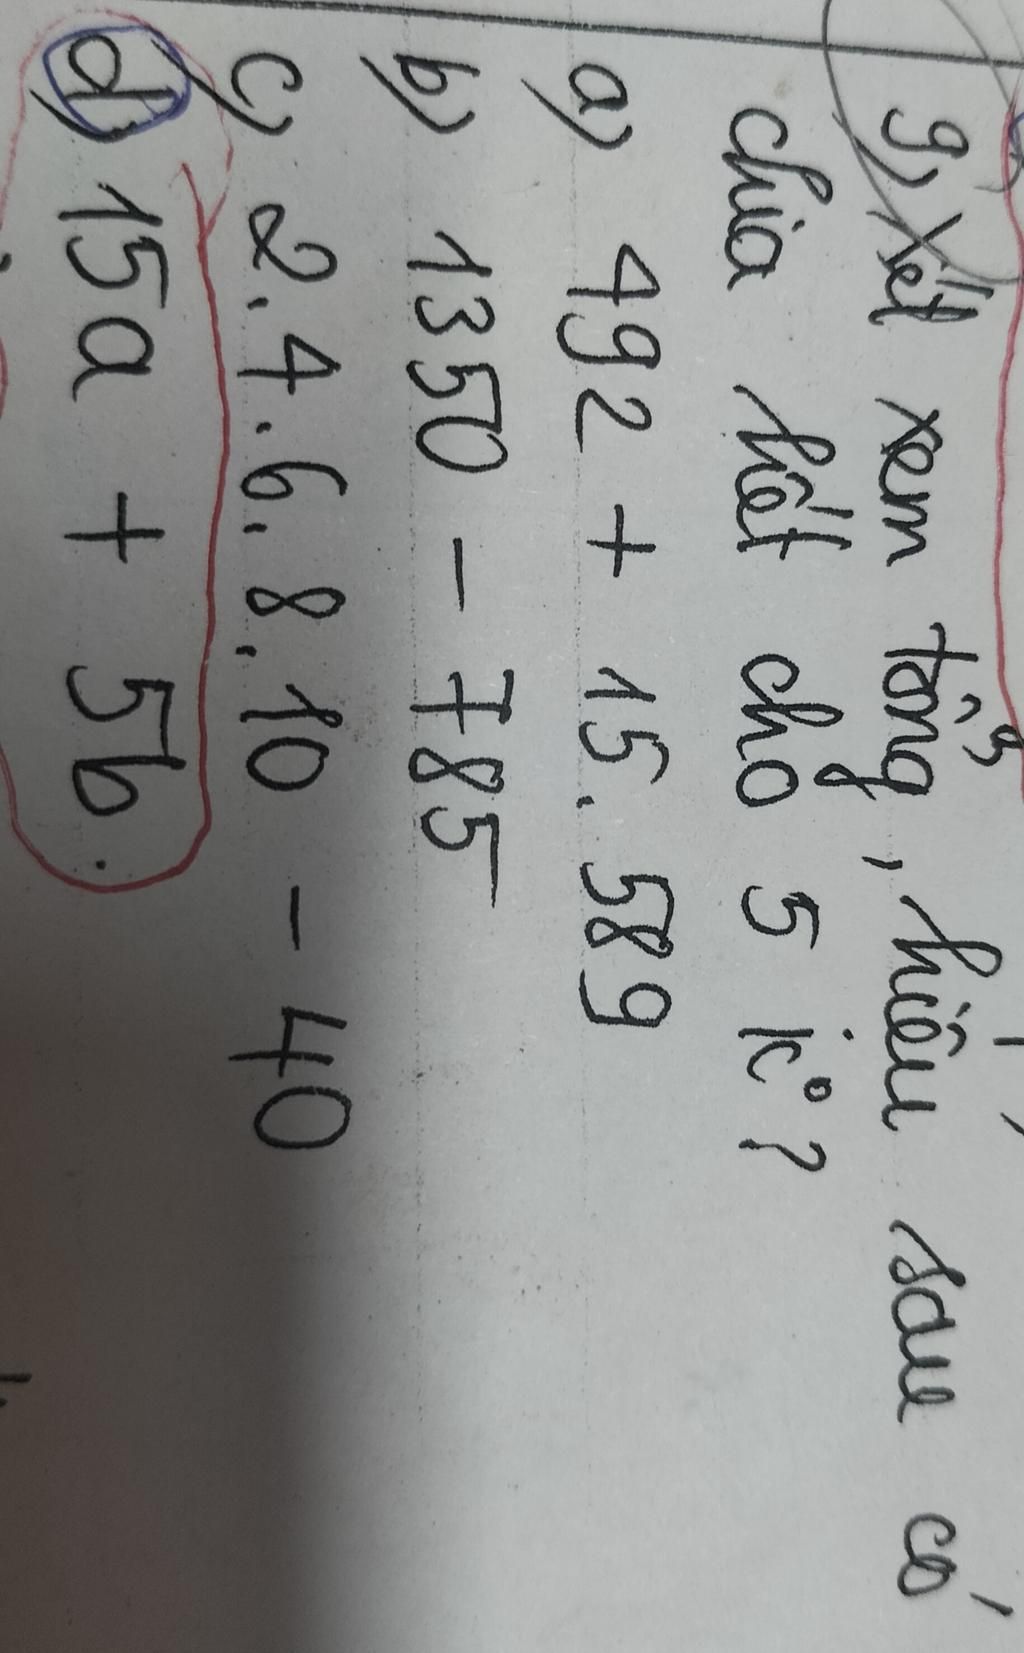 9) Xét xem tổng, hiệu sau có
chia hết cho 5 k°?
a) 492 + 15.589
b) 1350 - 785
c) 2.4.6.8.10 - 40
d) 15a + 5b.